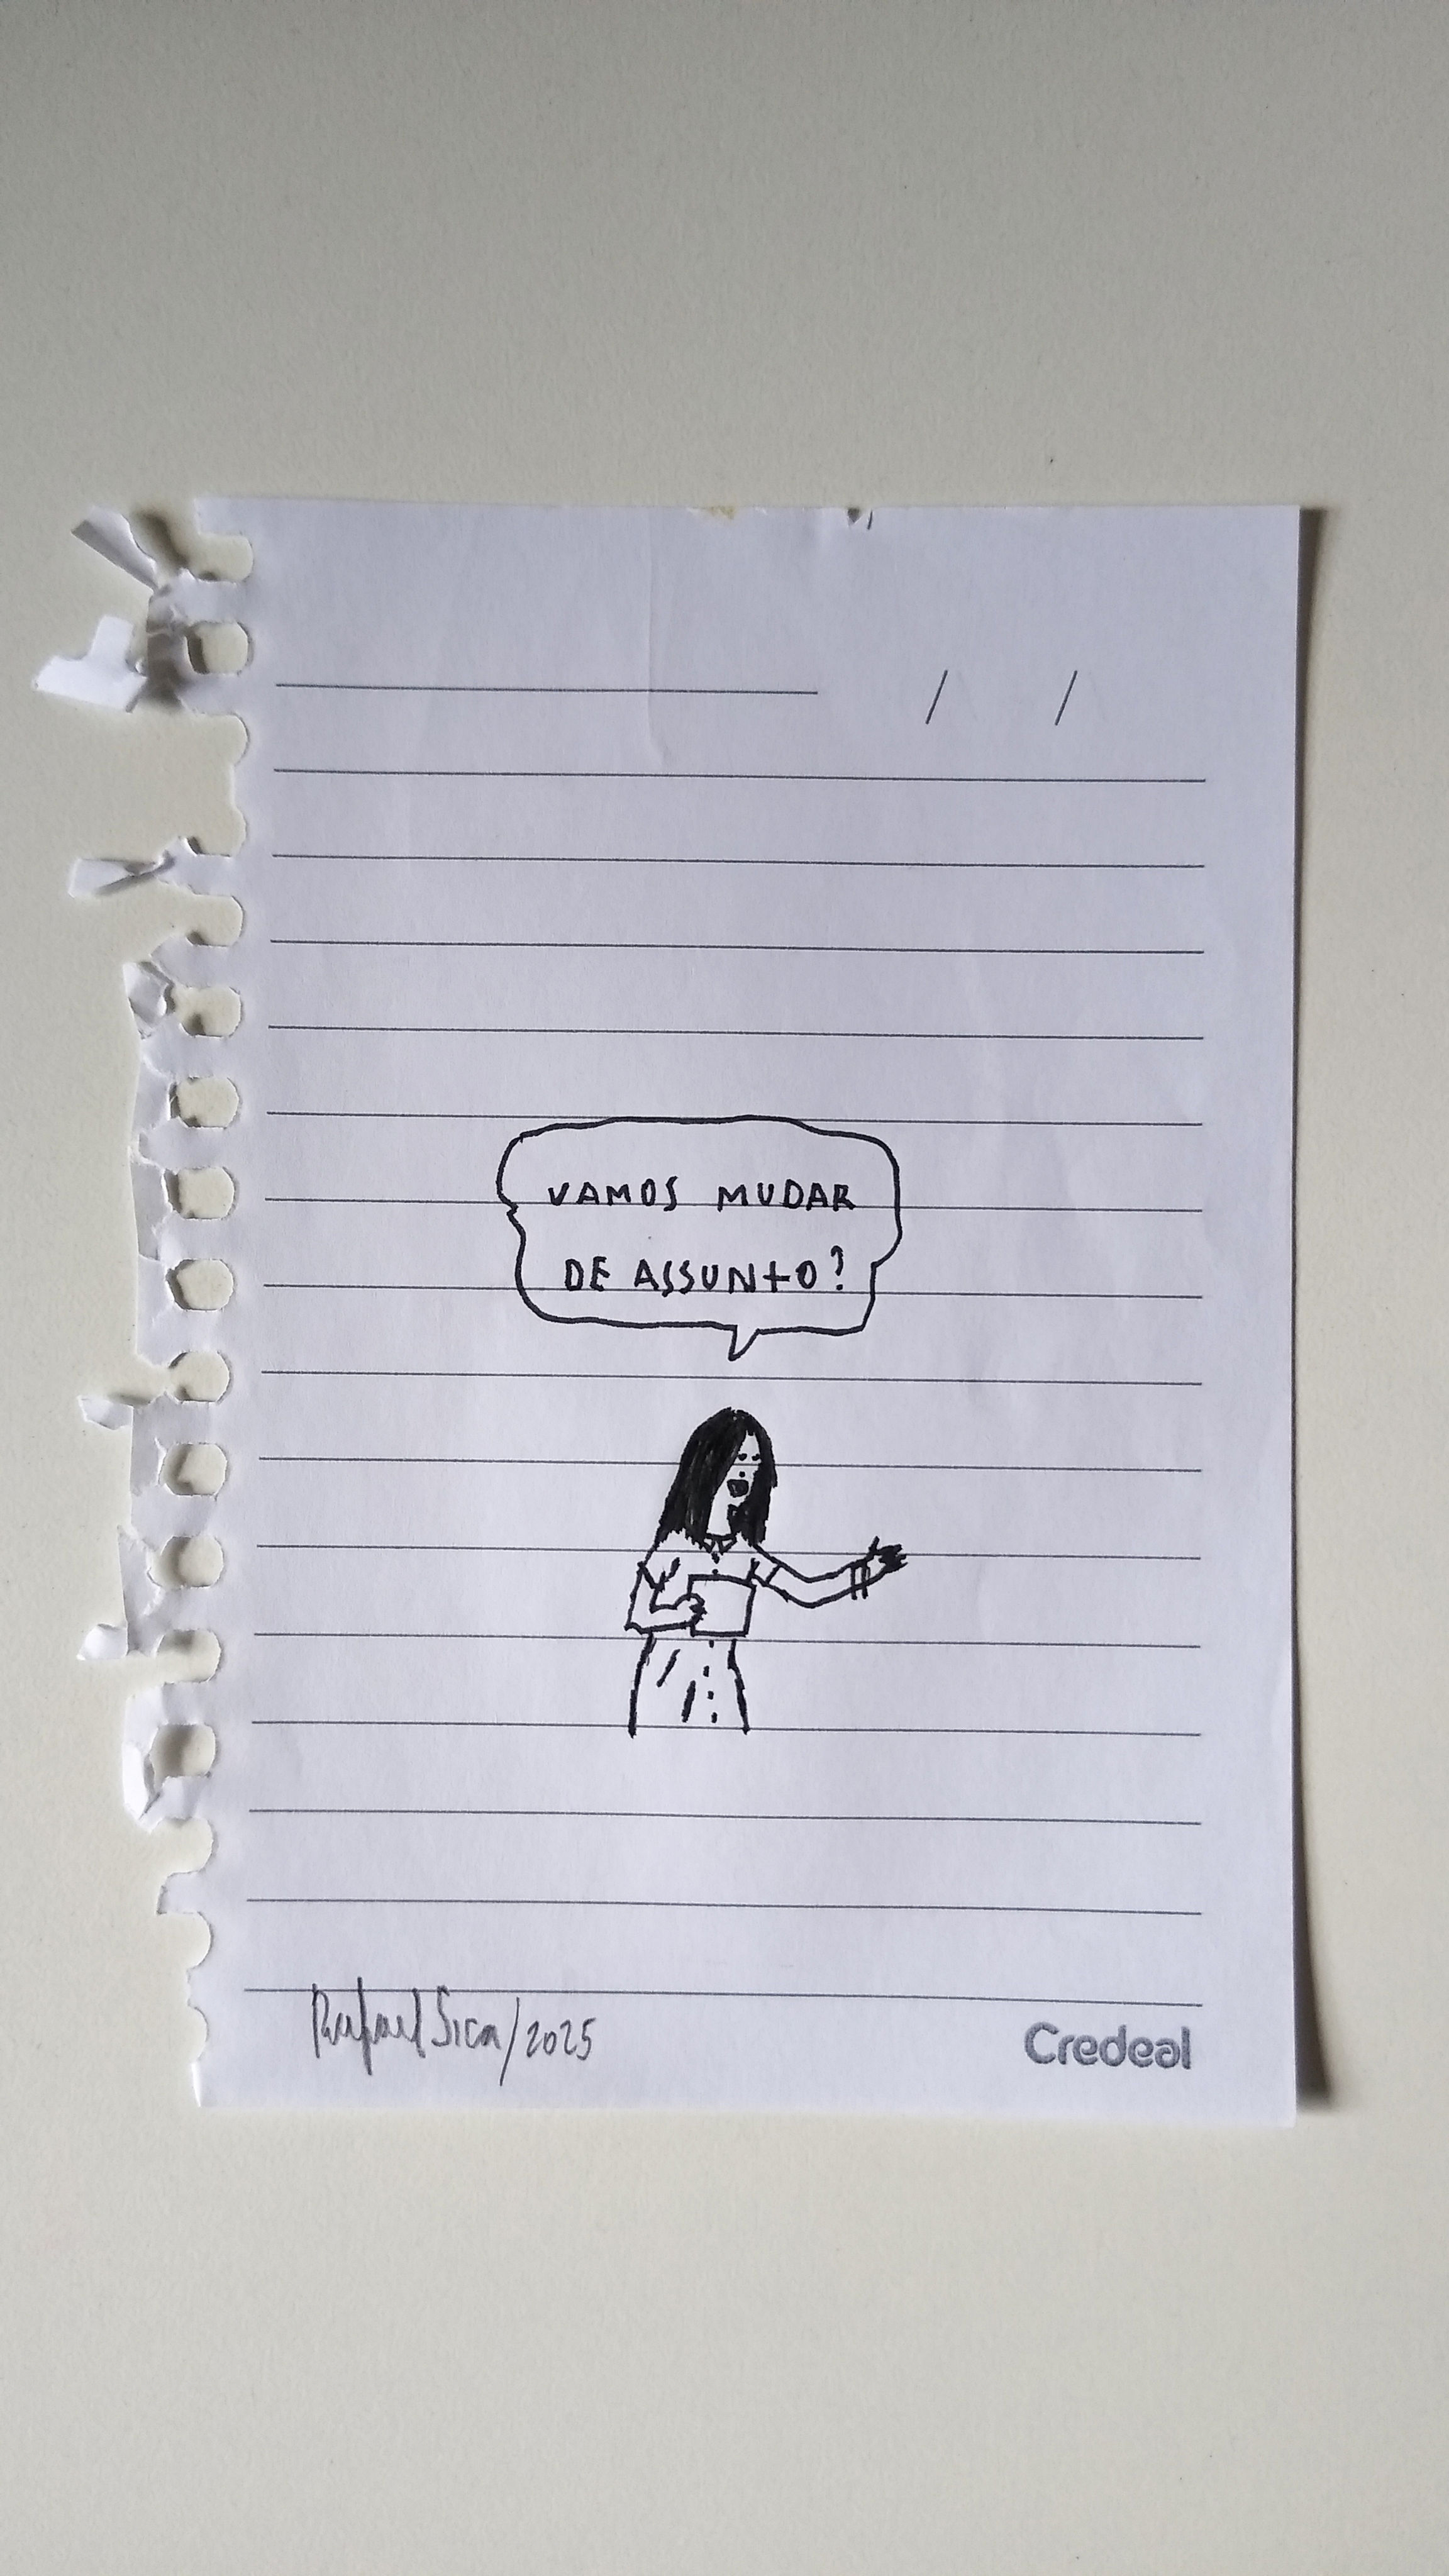 / /
VAMOS MUDAR
DE ASSUNTO?
Rafael Sica/2025
Credeal